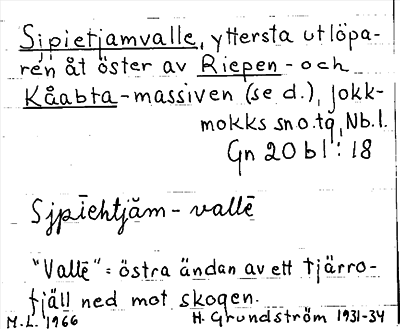 Sipietjamvalle, yttersta utlöpa-
ren åt öster av Riepen- och
Kåabta-massiven (se d.), Jokk-
mokks sn o. tg, Nb.l.
Gn 20 bl: 18
Sjpīehtjăm-vallē
"Vallē" = östra ändan av ett tjärro-
tjåll ned mot skogen.
M.L. 1966 H. Grundström 1931-34